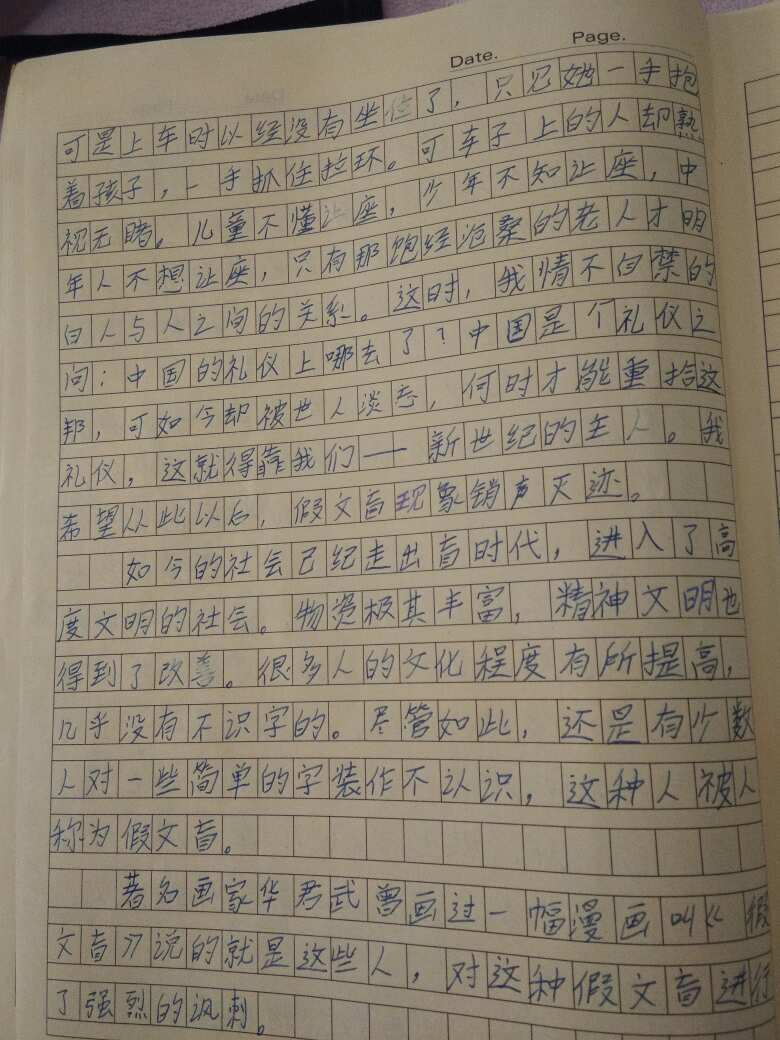 Date.
Page.
可是上车时以经没有坐位了，只见她一手抱
着孩子，一手抓住拉环。可车子上的人却熟
视无睹。儿童不懂让座，少年不知让座，中
年人不想让座，只有那饱经沧桑的老人才明
白人与人之间的关系。这时，我情不自禁的
问：中国的礼仪上哪去了？中国是个礼仪之
邦，可如今却被世人淡忘，何时才能重拾这
礼仪，这就得靠我们——新世纪的主人。我
希望从此以后，假文盲现象销声灭迹。
如今的社会已纪走出盲时代，进入了高
度文明的社会。物资极其丰富，精神文明也
得到了改善。很多人的文化程度有所提高，
几乎没有不识字的。尽管如此，还是有少数
人对一些简单的字装作不认识，这种人被人
称为假文盲。
著名画家华君武曾画过一幅漫画叫《假
文盲》说的就是这些人，对这种假文盲进行
了强烈的讽刺。